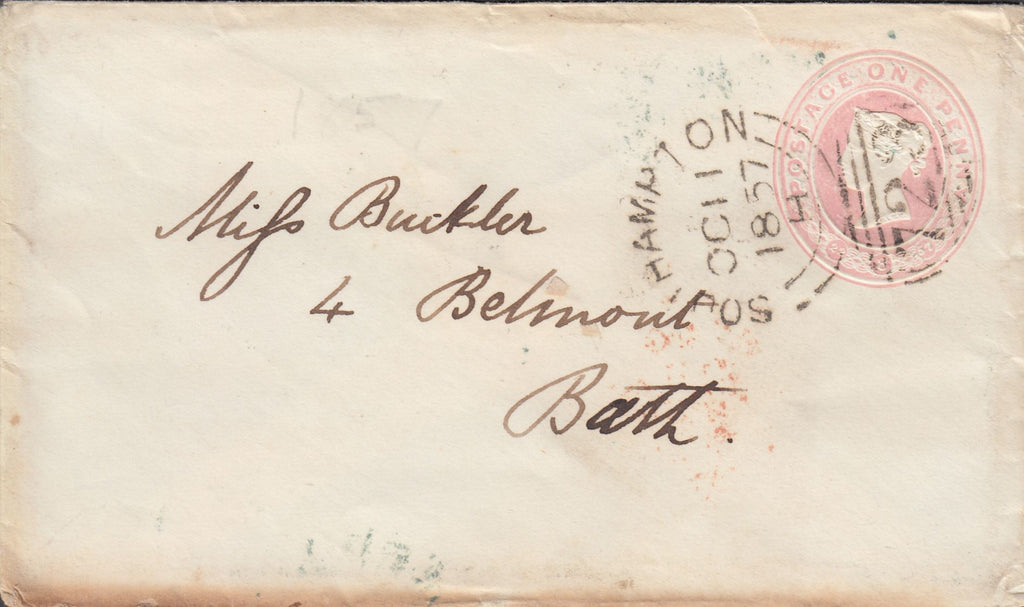 POSTAGE ONE PENNY
SOUTHAMPTON
OC 11
1857
H
Miſs Buckler
4 Belmont
Bath.